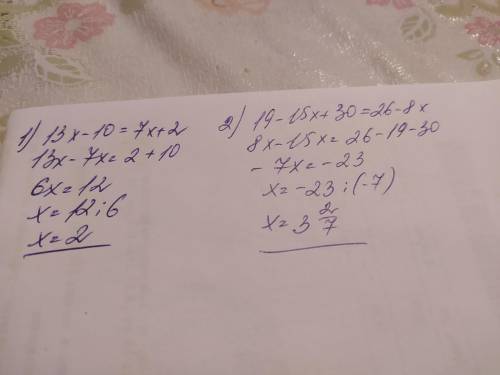 1) 13x-10=7x+2
13x-7x=2+10
6x=12
x=12:6
x=2
2) 19-15x+30=26-8x
8x-15x=26-19-30
-7x=-23
x=-23:(-7)
x=3 2/7